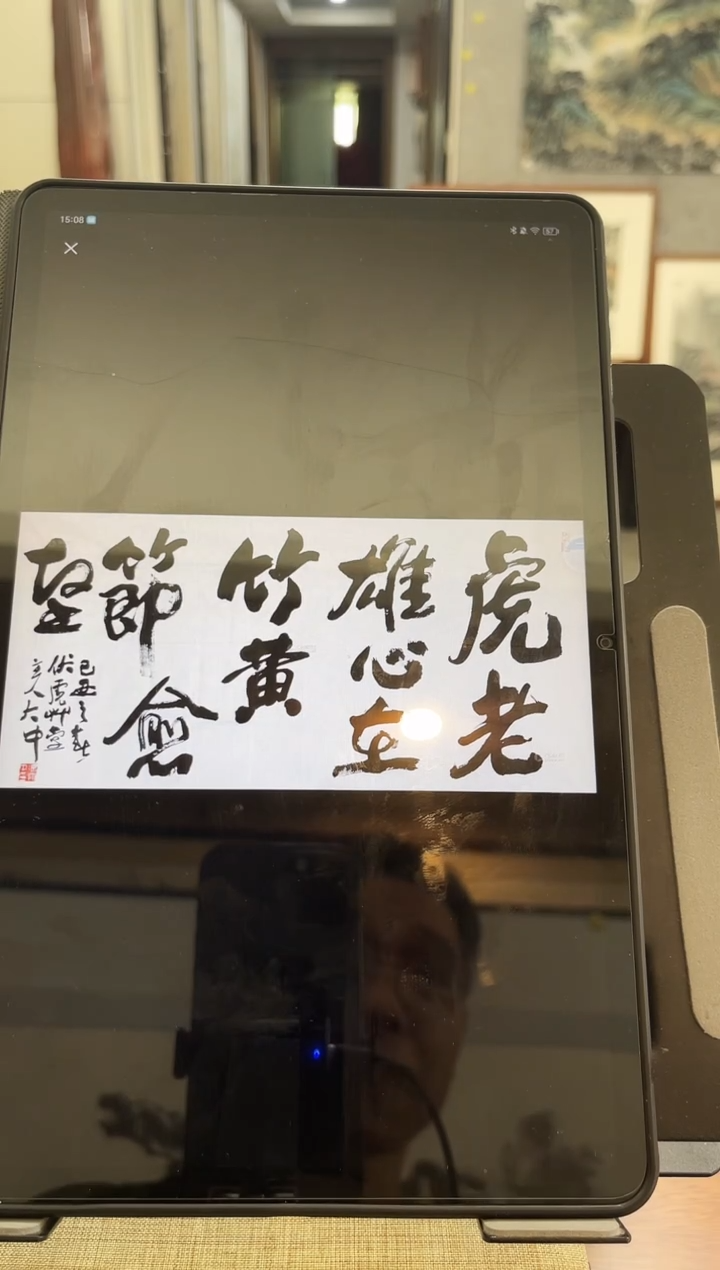 15:08
虎老
雄心在
竹黄
節愈
坚
己丑之春
伏虎艸堂
主人大中